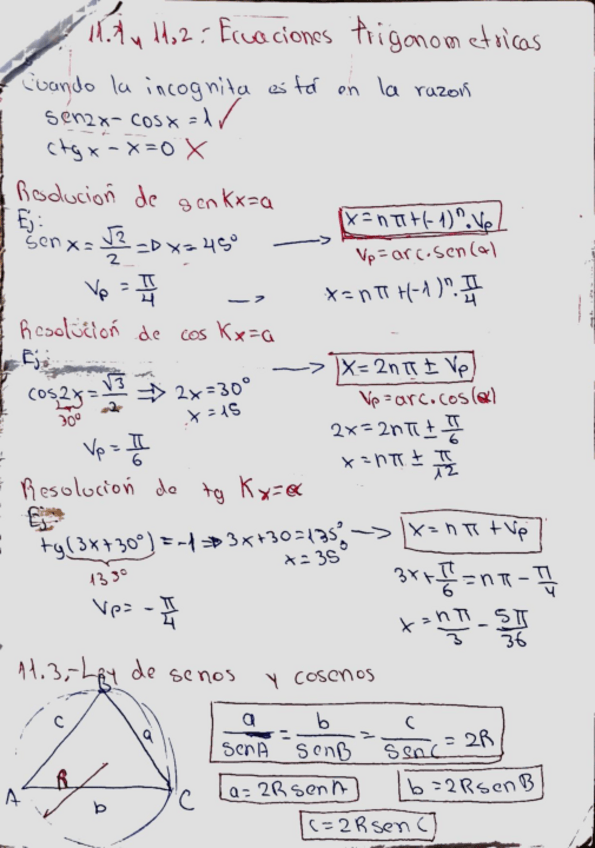 11.1 y 11.2: Ecuaciones trigonometricas
Cuando la incognita está en la razon
sen2x - cosx = 1 ✓
ctgx - x = 0 X
Resolución de sen Kx=a
Ej:
senx = √2/2 => x = 45° → x = nπ + (-1)ⁿ . Vp
Vp = arc.sen(a)
Vp = π/4 → x = nπ + (-1)ⁿ . π/4
Resolución de cos Kx=a
Ej: → x = 2nπ ± Vp
cos2x = √3/2 => 2x = 30°
30°
x = 15
Vp = arc.cos(α)
2x = 2nπ ± π/6
Vp = π/6
x = nπ ± π/12
Resolución de tg Kx=α
Ej:
tg(3x+30°) = -1 => 3x+30=135° → x = nπ + Vp
135°
x = 35°
3x + π/6 = nπ - π/4
Vp = - π/4
x = nπ/3 - 5π/36
11.3.- Ley de senos y cosenos
B
c
a
R
A
b
C
a/senA = b/senB = c/senC = 2R
a = 2RsenA
b = 2RsenB
c = 2RsenC